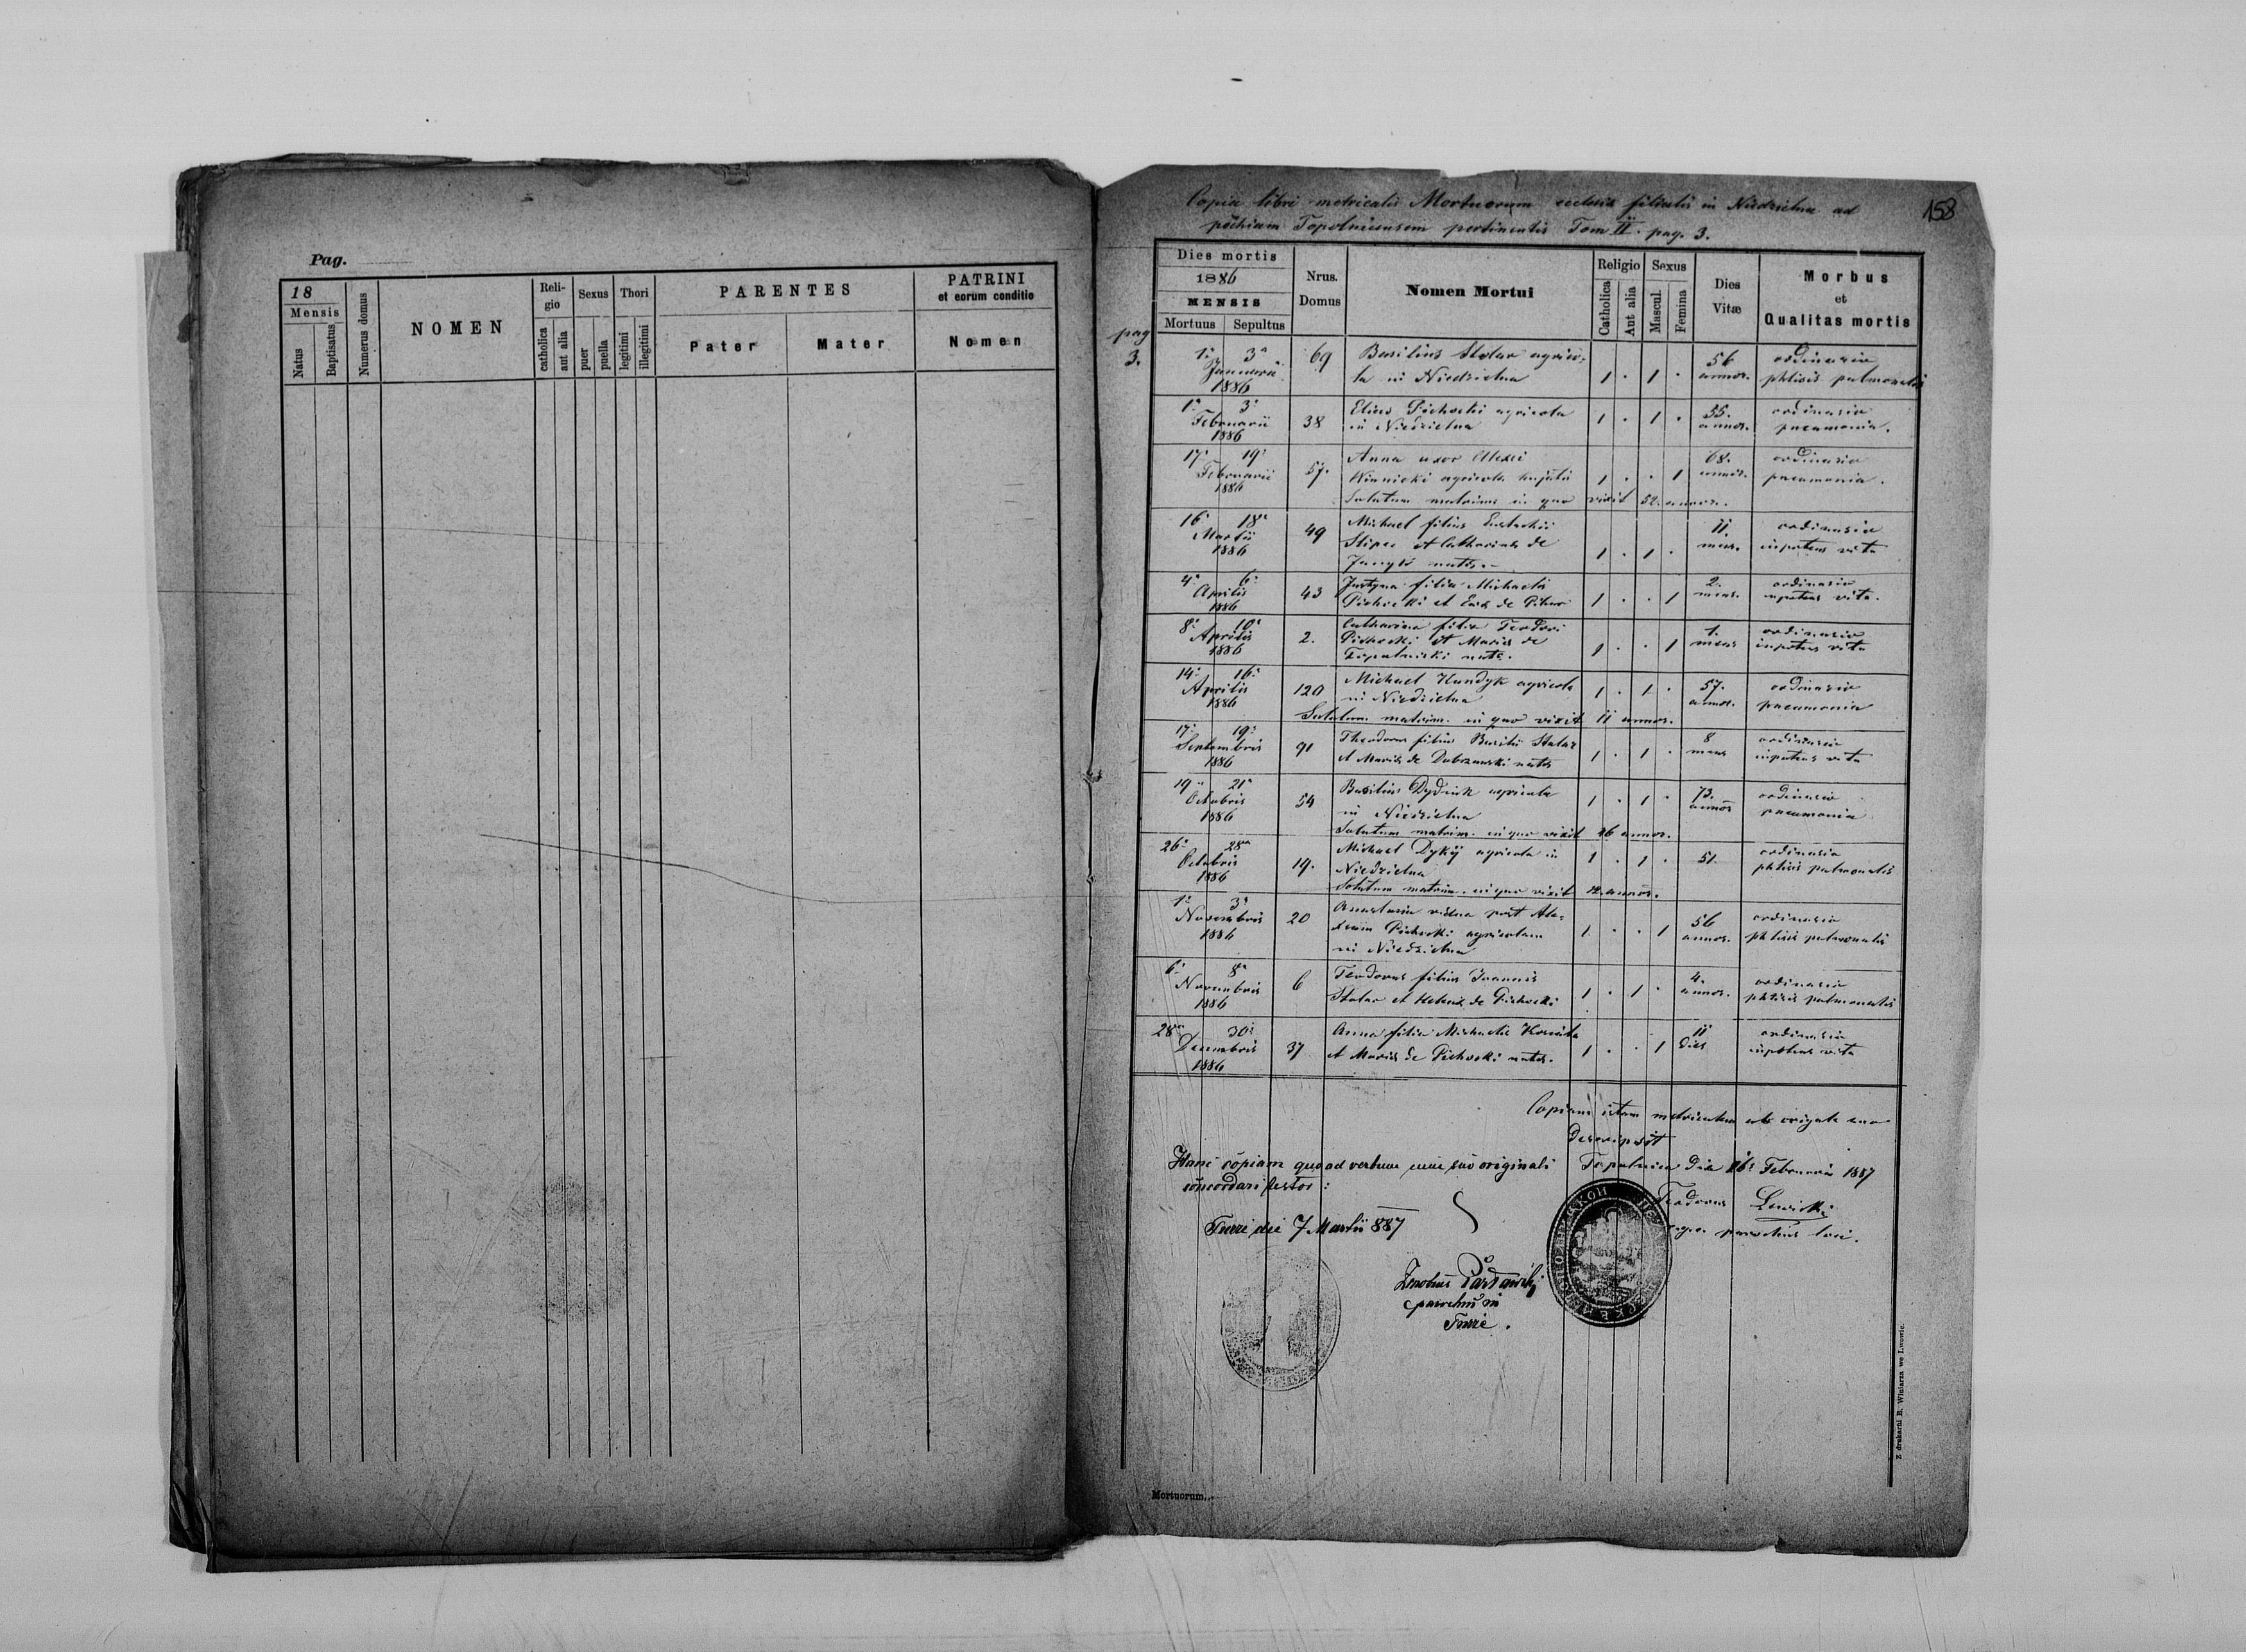 Pag.
18
Mensis
Natus
Baptisatus
Numerus domus
NOMEN
Reli-
gio
catholica
aut alia
Sexus
puer
puella
Thori
legitimi
illegitimi
PARENTES
Pater
Mater
PATRINI
et eorum conditio
Nomen
158
Copia libri metricalis Mortuorum ecclesiæ filialis in Niedzielna ad
pochiam Topolnicensem pertinentis Tom II. pag. 3.
Dies mortis
1886
MENSIS
Mortuus Sepultus
Nrus.
Domus
Nomen Mortui
Religio
Catholica
Aut alia
Sexus
Mascul.
Femina
Dies
Vitæ
Morbus
et
Qualitas mortis
pag
3.
1. 3a 69 Basilius Stolar agrico- 56 ordinaria
Januarii la in Niedzielna 1 . 1 . annor. phtisis pulmonalis
1886
1a 3. 38 Elias Pichocki agricola 1 . 1 . 55. ordinaria
Februarii in Niedzielna annor. pneumonia.
1886
17. 19. 57. Anna uxor Alexii 68. ordinaria
Februarii Winnicki agricola 1 . . 1 annor. pneumonia.
1886 Solutum matrimo in quo vixit 52. annor.
16. 18a 49 Michael filius Eustachii 11. ordinaria
Martii et Catharinæ de 1 . 1 . mens. impotens vita
1886 natæ.
4a 6. 43 Justyna filia Michaelis 2. ordinaria
Aprilis Pichocki et de 1 . . 1 mens. impotens vita.
1886
8. 10a 2. Catharina filia Teodori 1. ordinaria
Aprilis Pichocki et Mariæ de 1 . . 1 mens impotens vita
1886 Topolnicki natæ.
14. 16. 120 Michael Hundyk agricola 1 . 1 . 57. ordinaria
Aprilis in Niedzielna annor. pneumonia
1886 Solutum matrim. in quo vixit 11 annor.
17. 19. 91 Theodorus filius Basilii Stolar 1 . 1 . 8 ordinaria
Septembris et Mariæ de Dobrzanski natæ mens impotens vita
1886
19 21a 54 Basilius Dydiuk agricola 1 . 1 . 73. ordinaria
Octobris in Niedzielna annor pneumonia
1886 Solutum matrim. in quo vixit 26 annor.
26. 28a 19. Michael Dykij agricola in 1 . 1 . 51. ordinaria
Octobris Niedzielna phtisis pulmonalis
1886 Solutum matrim. in quo vixit 12. annor.
1. 3a 20 Anastasia vidua post Ale- 56 ordinaria
Novembris xium Pichocki agricolam 1 . . 1 annor. phtisis pulmonalis
1886 in Niedzielna
6. 8a 6 Teodorus filius Joannis 4. ordinaria
Novembris Stolar et Helenæ de Pichocki 1 . 1 . annor. phtisis pulmonalis
1886
28a 30. 37 Anna filia Michaelis 11 ordinaria
Decembris et Mariæ de Pichocki natæ. 1 . . 1 dies impotens vita
1886
Copiam istam metricalem ab origale suo
descripsit
Topolnica die 16. Februarii 1887
Teodorus Lewicki
parochus loci.
Hanc copiam quoad verbum cum suo originali
concordari testor:
Turze die 7 Martii 887
parochus in
Turze.
Mortuorum.
Z drukarni E. Winiarza we Lwowie.